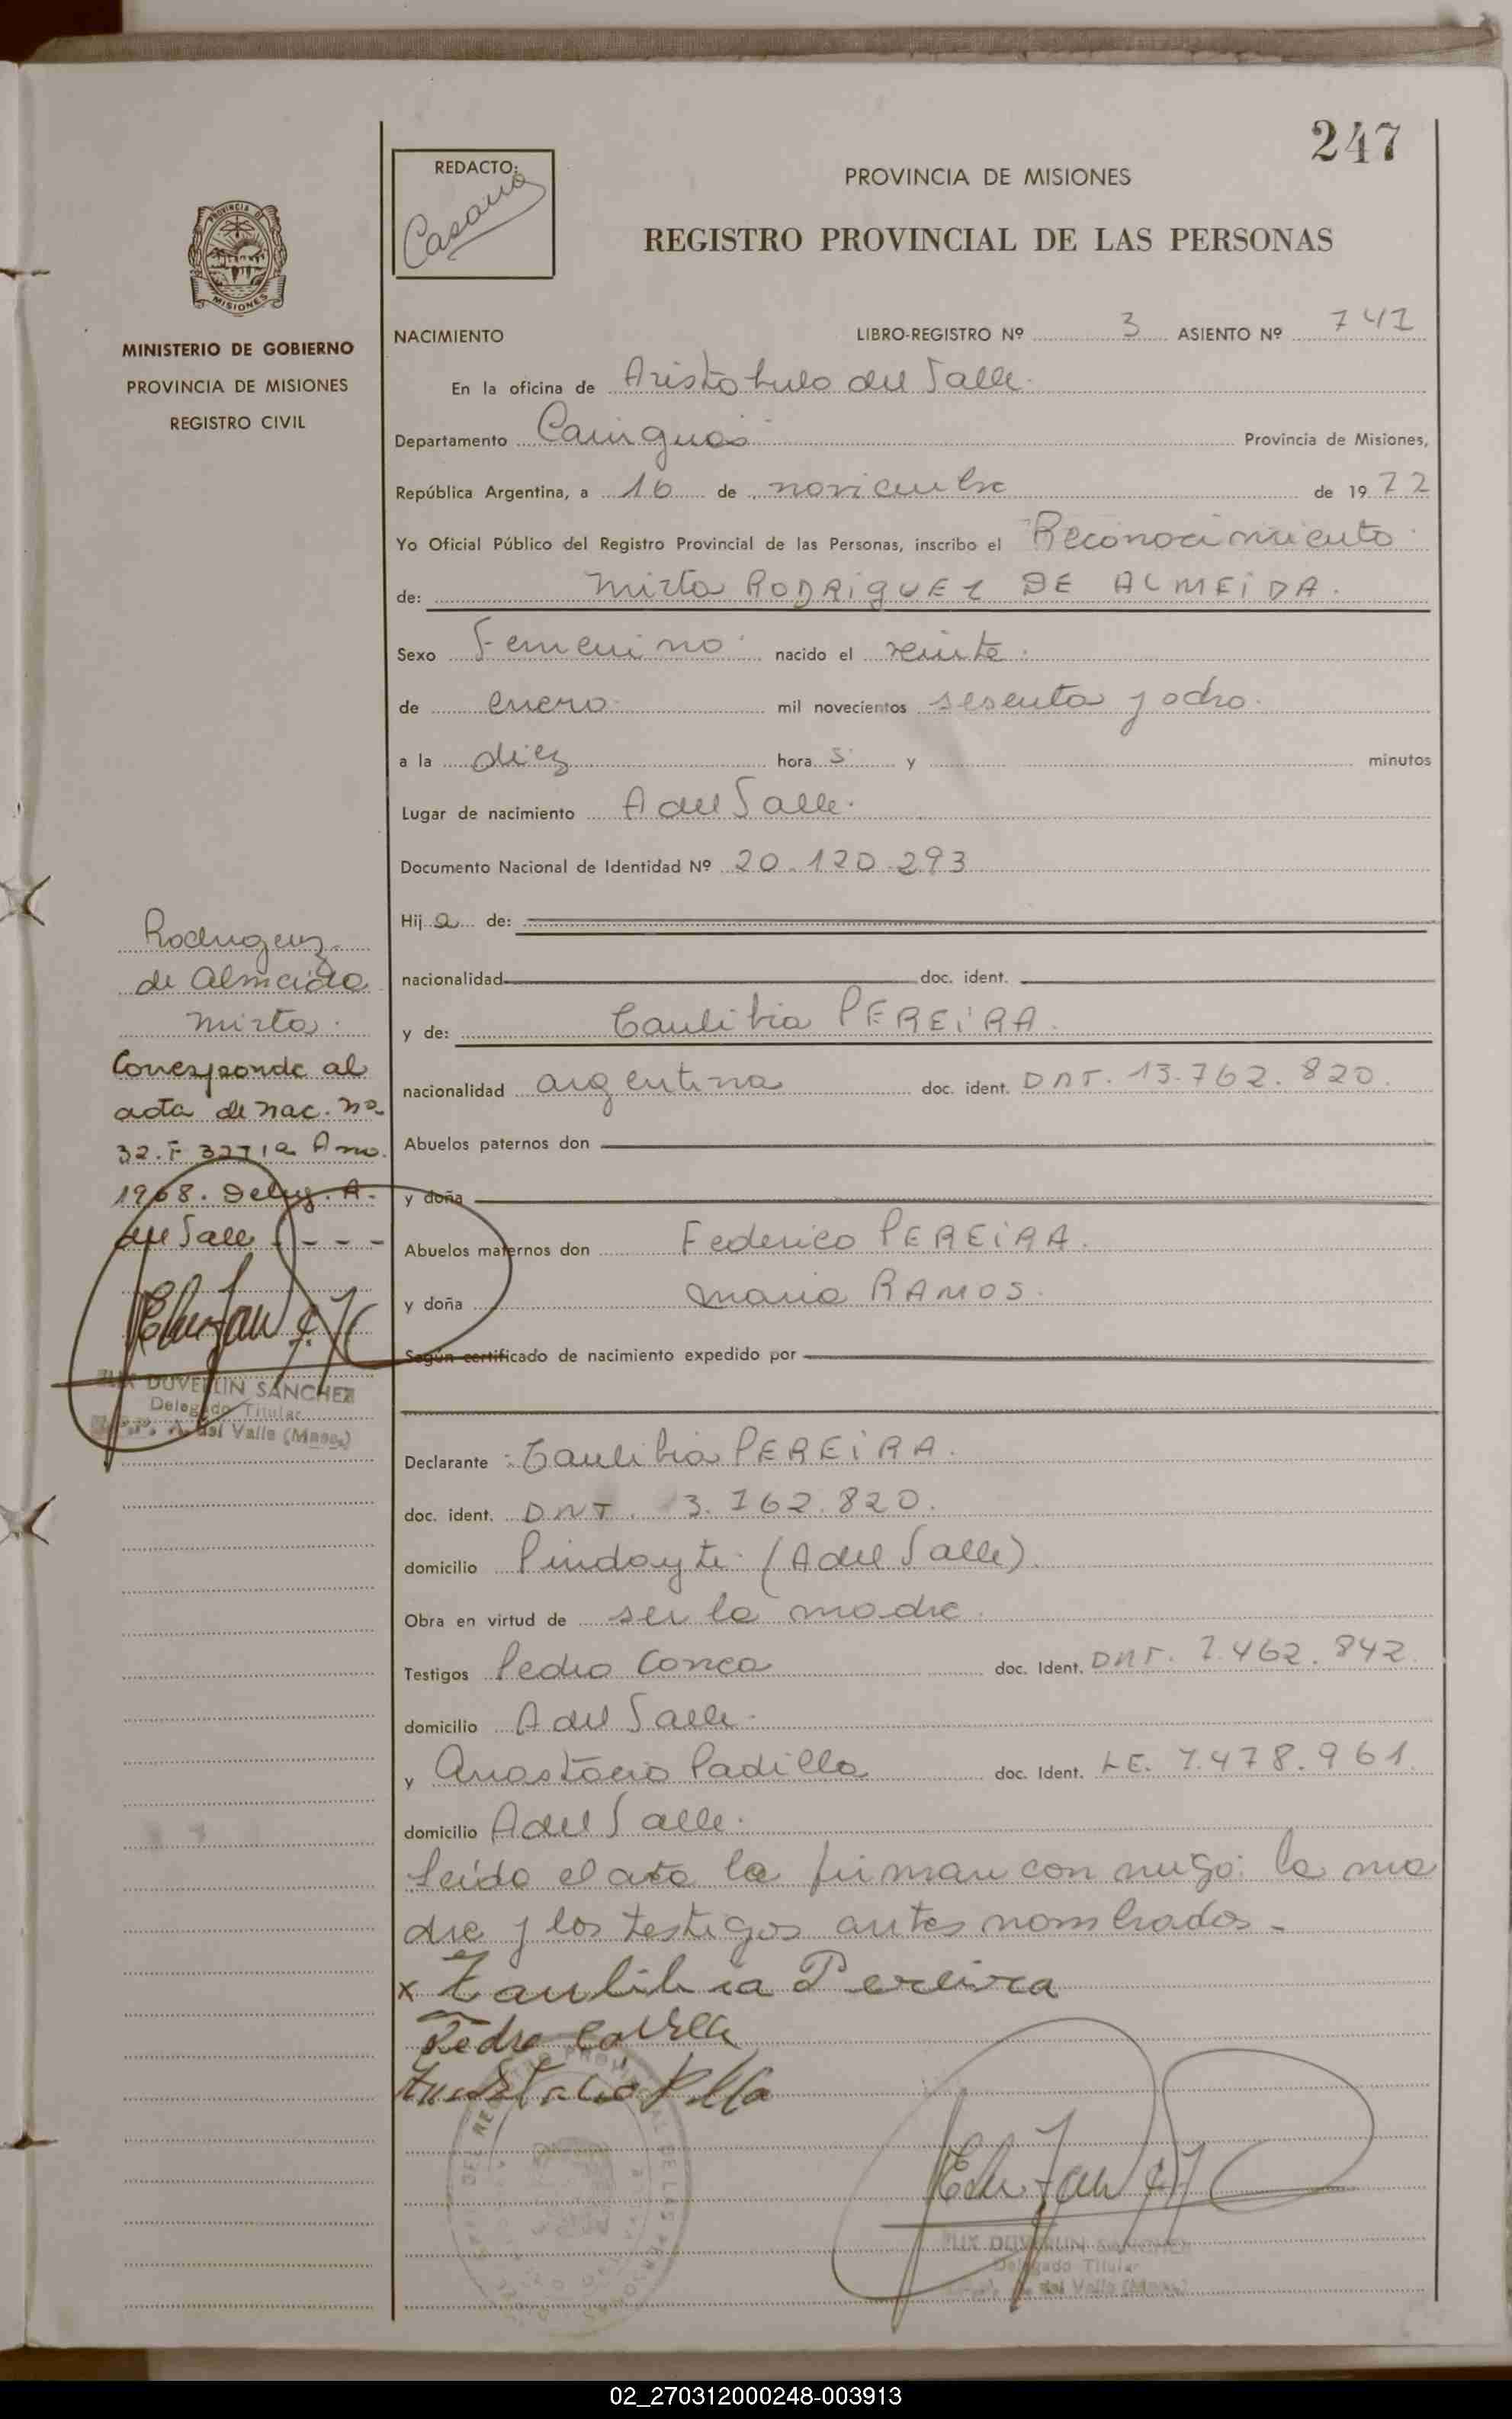 247
REDACTO:
Casana
PROVINCIA DE MISIONES
REGISTRO PROVINCIAL DE LAS PERSONAS
PROVINCIA DE
MISIONES
MINISTERIO DE GOBIERNO
PROVINCIA DE MISIONES
REGISTRO CIVIL
NACIMIENTO LIBRO-REGISTRO Nº 3 ASIENTO Nº 741
En la oficina de Aristobulo del Valle.
Departamento Cainguas Provincia de Misiones,
República Argentina, a 16 de noviembre de 1972
Yo Oficial Público del Registro Provincial de las Personas, inscribo el Reconocimiento
de: Mirta RODRIGUEZ DE ALMEIDA.
Sexo Femenino nacido el veinte.
de enero mil novecientos sesenta y ocho.
a la diez hora s y minutos
Lugar de nacimiento A del Valle.
Documento Nacional de Identidad Nº 20.120.293
Hij a de:
nacionalidad doc. ident.
y de: PEREIRA
nacionalidad argentina doc. ident. DNI. 13.762.820.
Abuelos paternos don
y doña
Abuelos maternos don Federico PEREIRA.
y doña Maria RAMOS.
Según certificado de nacimiento expedido por
Declarante: PEREIRA.
doc. ident. DNI. 3.762.820.
domicilio Pindayti (A del Valle).
Obra en virtud de ser la madre.
Testigos Pedro Correa doc. Ident. DNI. 7.462.842.
domicilio A del Valle.
y Anastacio Padilla doc. Ident. LE. 7.478.961.
domicilio A del Valle.
Leída el acta la firman conmigo: la ma
dre y los testigos antes nombrados.
x Pereira
Pedro
Rodriguez
de Almeida
Mirta.
Corresponde al
acta de nac. nº
32. F Año
1968. Deleg. A.
del Valle - - -
DUVERLIN SANCHEZ
Delegado Titular
A. del Valle (Mnes.)
DUVERLIN SANCHEZ
Delegado Titular
del Valle (Mnes.)
02_270312000248-003913